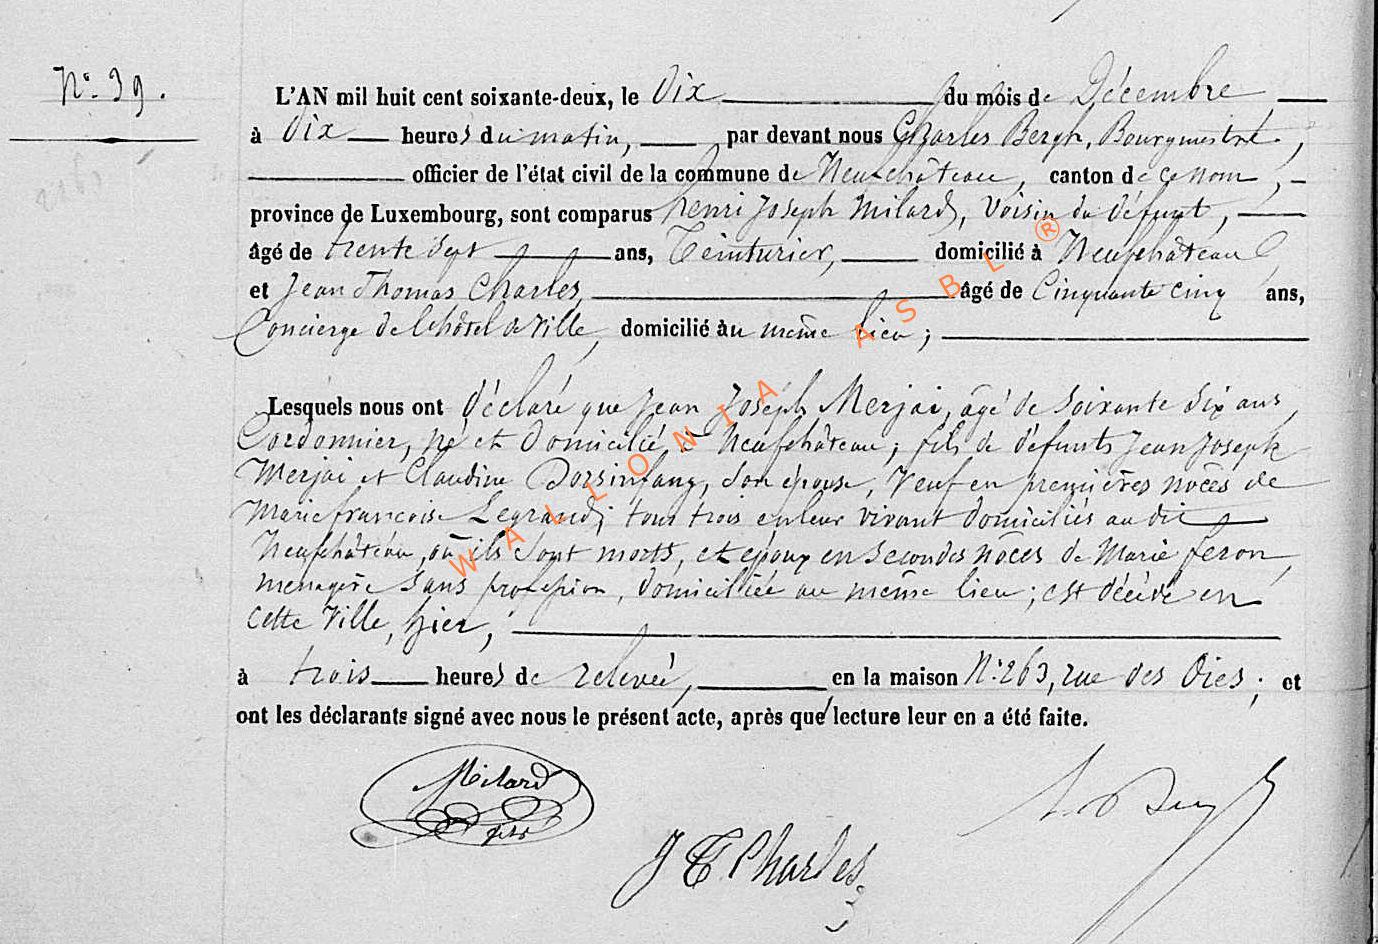 N° 39.
L'AN mil huit cent soixante-deux, le dix du mois de Décembre
à dix heures du matin, par devant nous Charles Bergh, Bourgmestre,
officier de l'état civil de la commune de Neufchâteau, canton de ce nom,
province de Luxembourg, sont comparus henri Joseph Milard, Voisin du défunt,
âgé de trente sept ans, Teinturier, domicilié à Neufchâteau
et Jean Thomas Charles, âgé de Cinquante cinq ans,
Concierge de l'hôtel de Ville, domicilié au même lieu;
Lesquels nous ont déclaré que Jean Joseph Merjai, âgé de Soixante dix ans,
Cordonnier, né et domicilié à Neufchâteau; fils de défunts Jean Joseph
Merjai et Claudine Dorsinfang, son épouse, Veuf en premières nôces de
Marie françoise Legrand; tous trois en leur vivant domiciliés au dit
Neufchâteau, où ils sont morts, et époux en Secondes nôces de Marie feron,
menagère sans profession, domiciliée au même lieu; est décédé en
cette Ville, hier,
à trois heures de relevée, en la maison N° 263, rue des Oies; et
ont les déclarants signé avec nous le présent acte, après que lecture leur en a été faite.
Milard
fils
J T Charles
WALLONIA ASBL ®